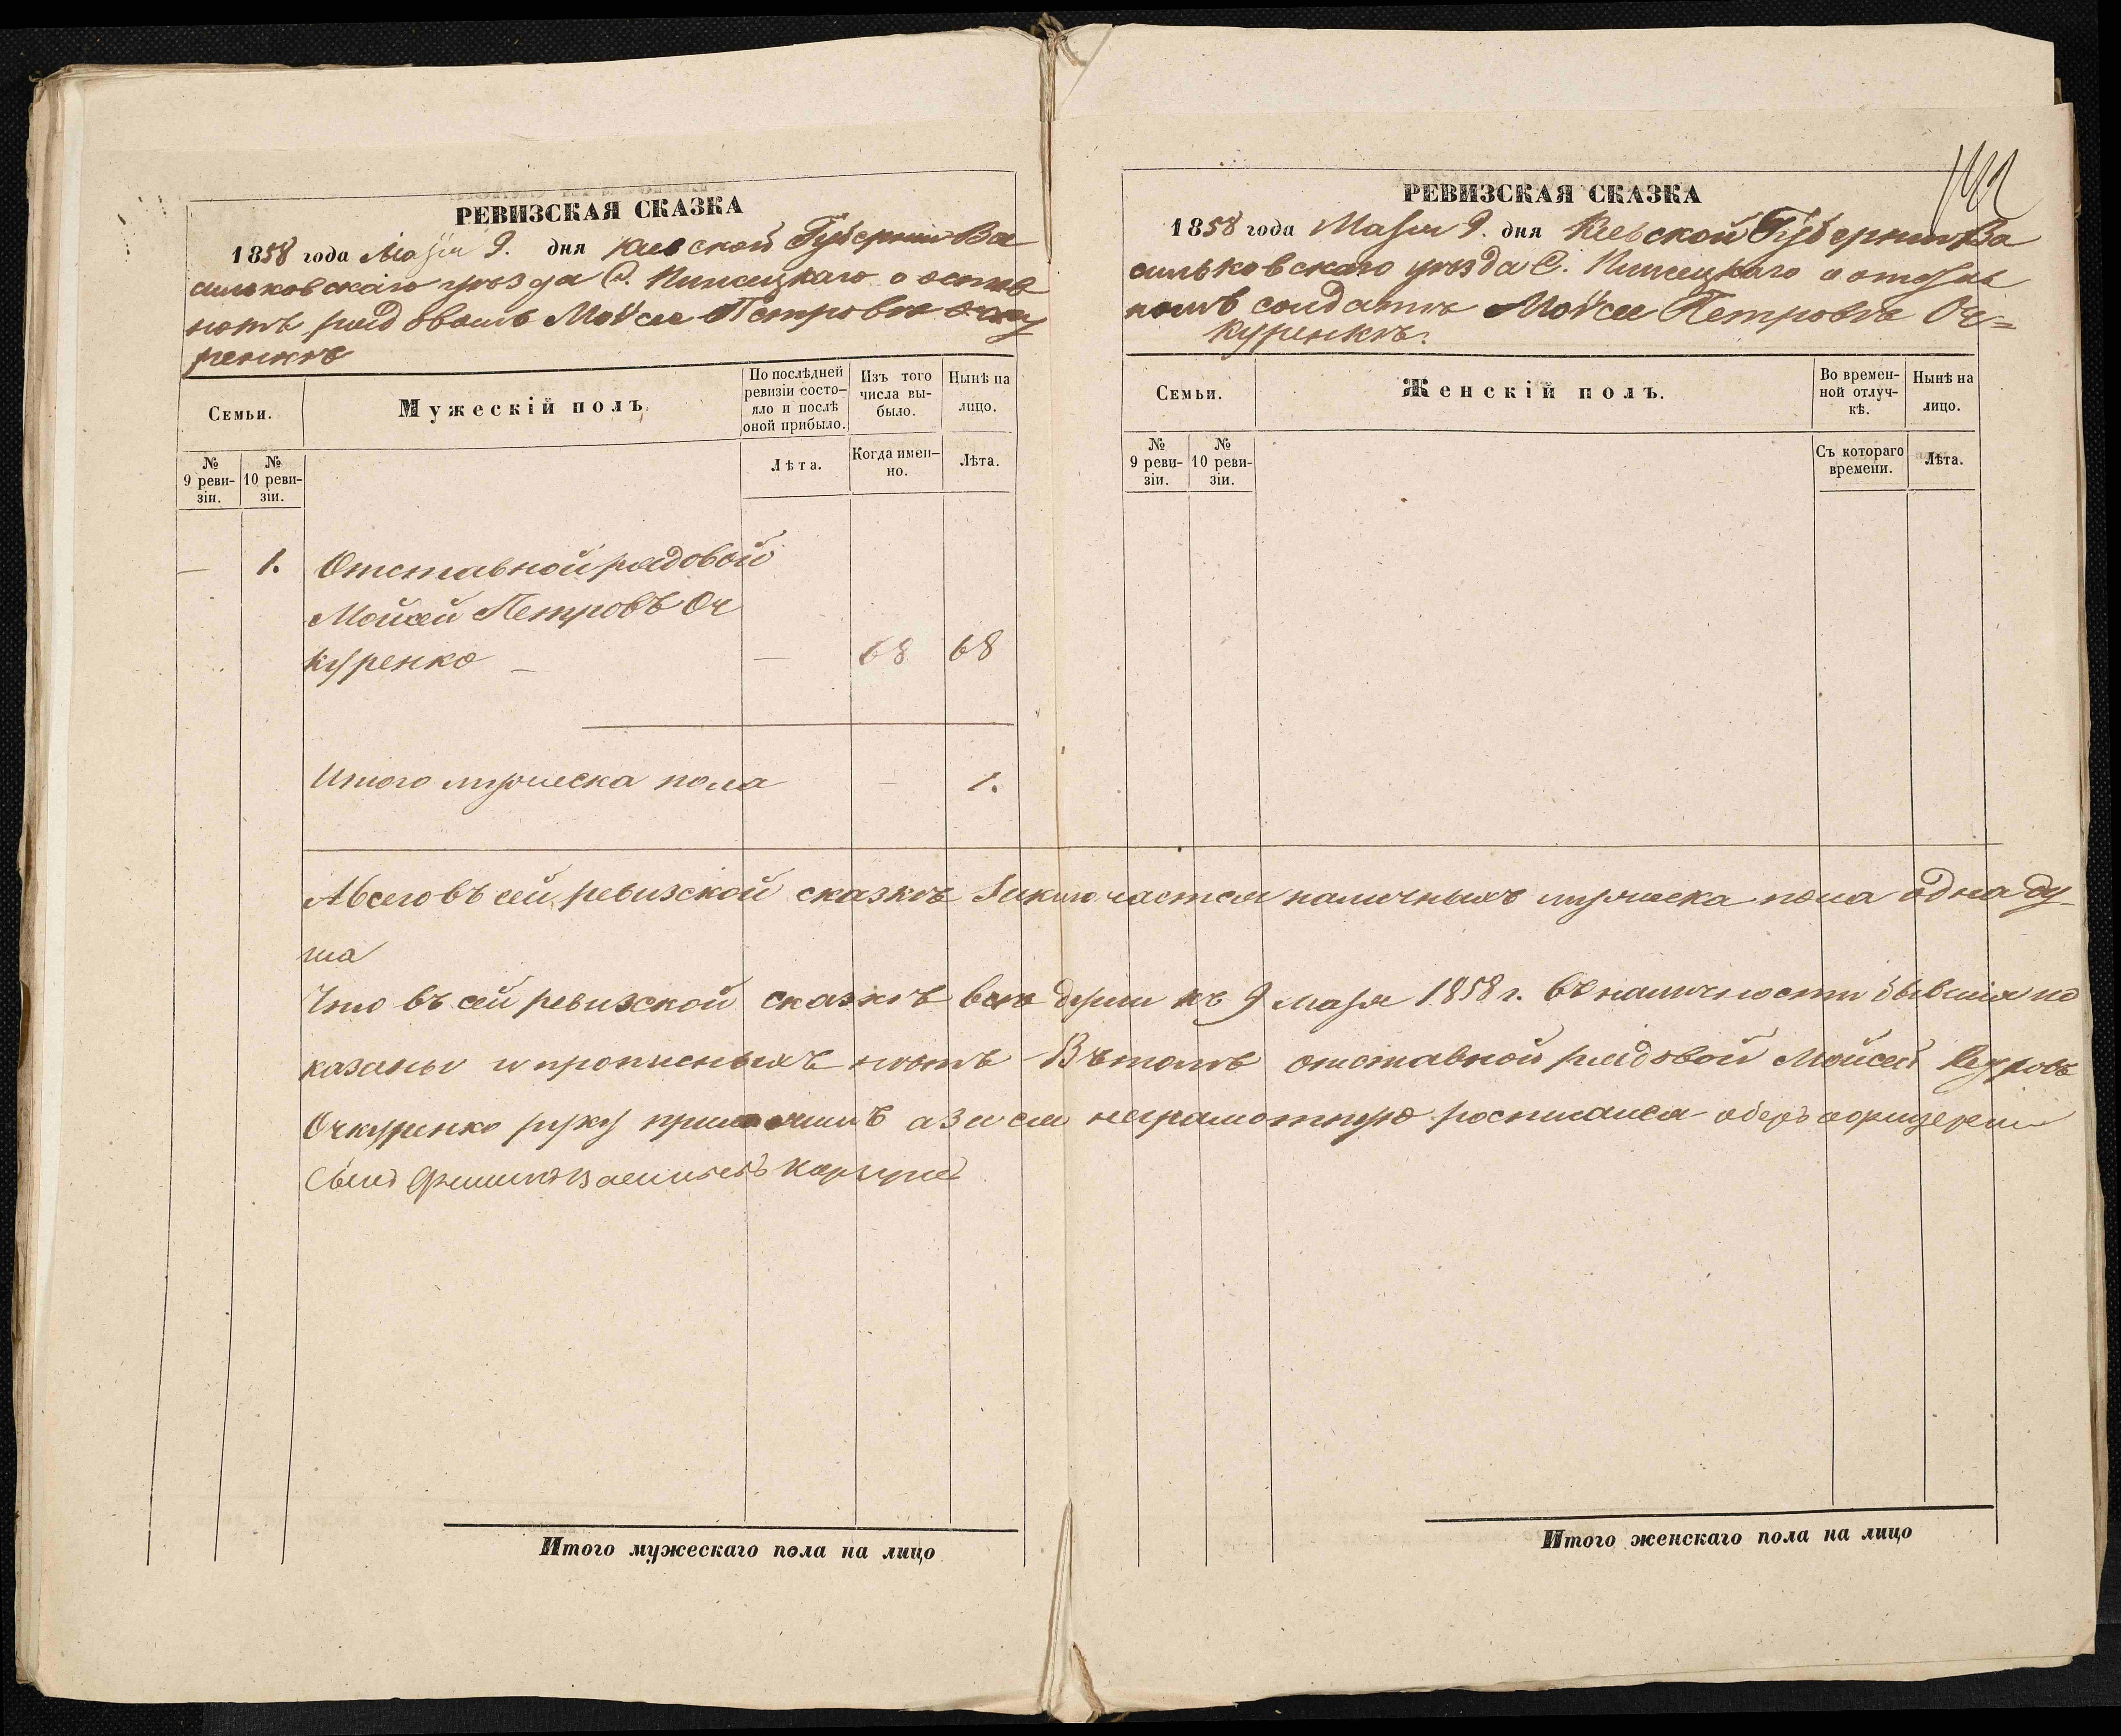 РЕВИЗСКАЯ СКАЗКА
1858 года Маія 9. дня Кіевской Губерніи Ва
сильковскаго уѣзда С. Пинчицкаго о
рядовомъ Мойсее Петровѣ
ренкѣ
Семьи.
Мужескій полъ.
По послѣдней ревизіи состо–
яло и послѣ оной прибыло.
Изъ того числа вы–
было.
Нынѣ на лицо.
№ 9 реви–зіи.
№ 10 реви–зіи.
Лѣта.
Когда имен–но.
Лѣта.
— 1. Отставной рядовой
Мойсей Петровъ Оч
куренко — — 68 68
Итого мужеска пола — 1.
РЕВИЗСКАЯ СКАЗКА
1858 года Маія 9. дня Кіевской Губерніи Ва
сильковскаго уѣзда С. Пинчицкаго о
солдатѣ Мойсее Петровѣ Оч=
куренкѣ.
Семьи.
Женскій полъ.
Во времен–ной отлуч–кѣ.
Нынѣ на лицо.
№ 9 реви–зіи.
№ 10 реви–зіи.
Съ котораго времени.
Лѣта.
А всего въ сей ревизской сказкѣ заключается наличныхъ мужеска пола одна ду
ша
Что въ сей ревизской сказкѣ всѣ души къ 9 маія 1858 г. въ наличности бывшія по
казаны и прописныхъ нѣтъ Въ томъ отставной рядовой Мойсей Петровъ
Очкуренко руку приложилъ а за неграмотную росписался оберъ офицерскі
сынъ Васильевъ
Итого мужескаго пола на лицо
Итого женскаго пола на лицо